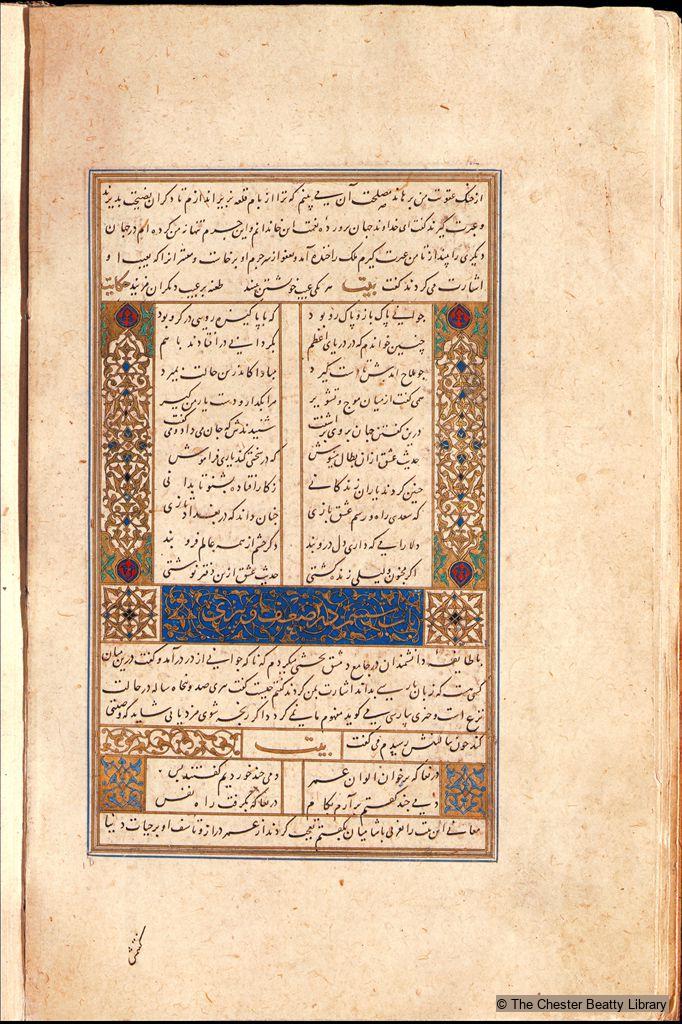 از چنگ عقوبت من برهاند مصلحت آن می بینم که ترا از بام قلعه بزیر اندازم تا دکران نصیحت پذیرند
و عبرت گیرند گفت ای خداوند جهان پرورده نعمت این خاندانم و این جرم تنها نه من کرده ام در جهان
دیگری را بینداز تا من عبرت گیرم ملک را خنده آمد و بعفو از سر جرم او برخاست و متعنتان را که بعیب او
اشارت می کردند گفت بیت همه کی عیب خویشتن بینید طعنه بر عیب دیگران مزنید حکایت
جوانی پاک باز و پاک رو بود که با پاکیزه رویی در گرو بود
چنین خواندم که در دریای اعظم بگردابی در افتادند با هم
چو ملاح آمدش تا دست گیرد مبادا کاندر آن حالت بمیرد
همی گفت از میان موج و تشویر مرا بگذار و دست یار من گیر
درین گفتن جهان بروی برآشفت شنیدندش که جان می داد و می گفت
حدیث عشق از آن بطال منیوش که در سختی کند یاری فراموش
چنین کردند یاران زندگانی ز کار افتاده بشنو تا بدانی
که سعدی راه و رسم عشق بازی چنان داند که در بغداد تازی
دلارامی که داری دل درو بند دگر چشم از همه عالم فرو بند
اگر مجنون و لیلی زنده گشتی حدیث عشق ازین دفتر نوشتی
باب ششم در ضعف و پیری
با طایفه دانشمندان در جامع دمشق بحثی میکردم که ناگه جوانی از در درآمد و گفت درین میان
کسی هست که زبان پارسی بداند اشارت بمن کردند گفتم خیرست گفت پیری صد و پنجاه ساله در حالت
نزع است و حرفی پارسی می گوید مفهوم ما نمی گردد اگر رنجه شوی مزد یابی شاید که وصیتی
کند چون ببالینش رسیدم می گفت بیت
دمی چند گفتم برآرم بکام دریغا که بگرفت راه نفس
دریغا که بر خوان الوان عمر دمی چند خوردیم گفتند بس
معانی این بیت را بعربی با شامیان بگفتم تعجب کردند از عمر دراز و تاسف او بر حیات دنیا
© The Chester Beatty Library